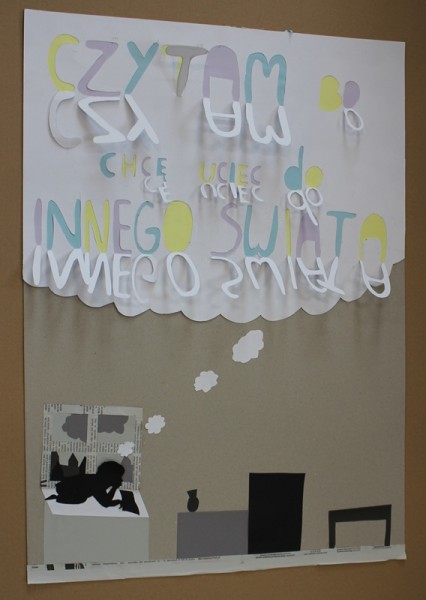 CZYTAM BO
CHCE UCIEC do
INNEGO SWIATA